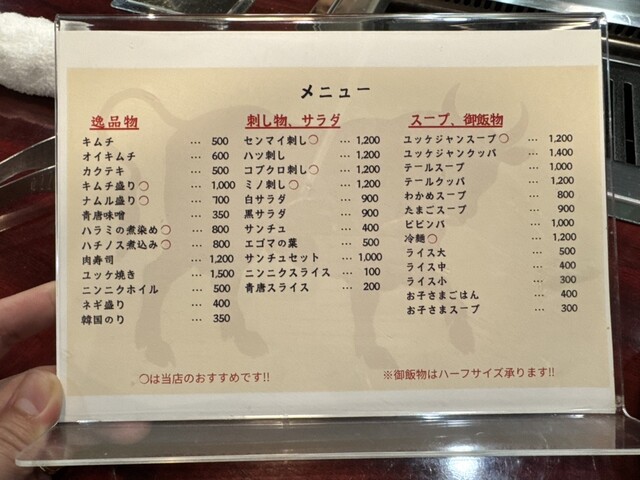 メニュー
逸品物
キムチ … 500
オイキムチ … 600
カクテキ … 500
キムチ盛り〇 … 1,000
ナムル盛り〇 … 700
青唐味噌 … 350
ハラミの煮染め〇 … 800
ハチノス煮込み〇 … 800
肉寿司 … 1,200
ユッケ焼き … 1,500
ニンニクホイル … 500
ネギ盛り … 400
韓国のり … 350
刺し物、サラダ
センマイ刺し〇 … 1,200
ハツ刺し … 1,200
コブクロ刺し〇 … 1,200
ミノ刺し〇 … 1,200
白サラダ … 900
黒サラダ … 900
サンチュ … 400
エゴマの葉 … 500
サンチュセット … 1,000
ニンニクスライス … 100
青唐スライス … 200
スープ、御飯物
ユッケジャンスープ〇 … 1,200
ユッケジャンクッパ … 1,400
テールスープ … 1,000
テールクッパ … 1,200
わかめスープ … 800
たまごスープ … 900
ビビンバ … 1,000
冷麺〇 … 1,200
ライス大 … 500
ライス中 … 400
ライス小 … 300
お子さまごはん … 400
お子さまスープ … 300
〇は当店のおすすめです!!
※御飯物はハーフサイズ承ります!!